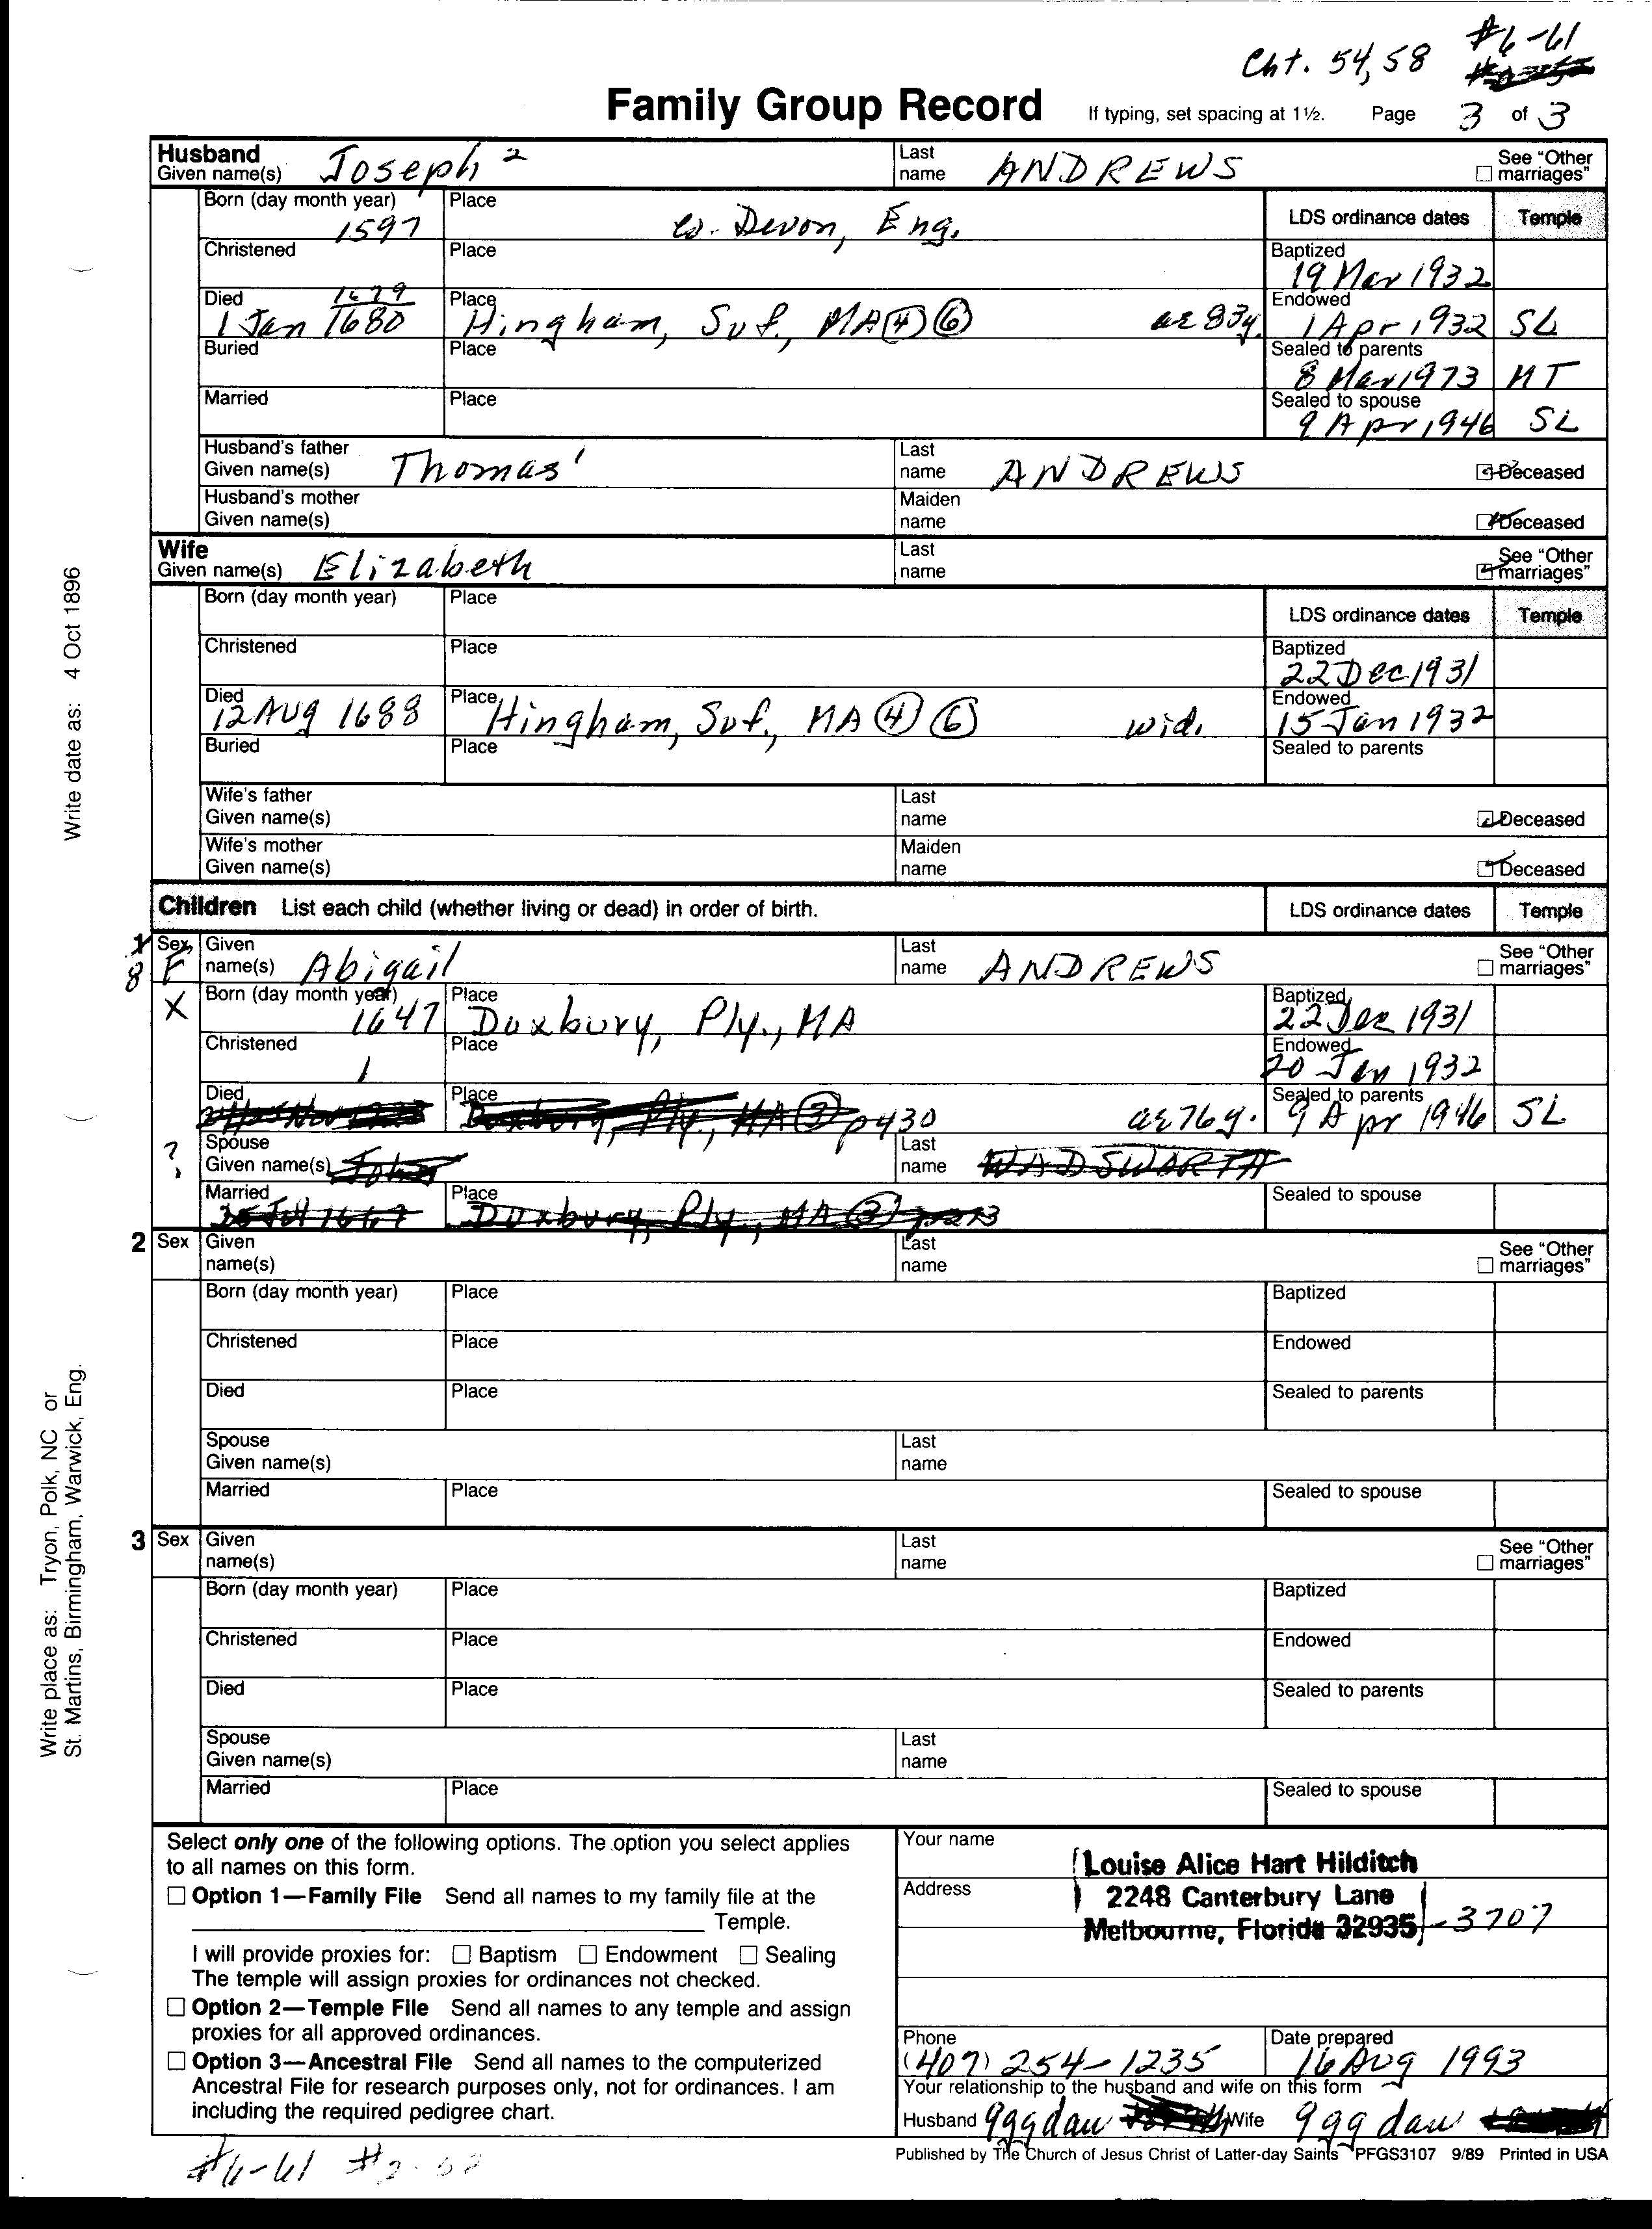 Cht. 54, 58 #6-61
Family Group Record If typing, set spacing at 1½. Page 3 of 3
Husband
Given name(s) Joseph ² Last name ANDREWS ☐ See "Other marriages"
Born (day month year) 1597 Place co. Devon, Eng. LDS ordinance dates Temple
Christened Place Baptized 19 Mar 1932
Died 1 Jan 1679/1680 Place Hingham, Suf., MA ④ ⑥ ae 83y. Endowed 1 Apr 1932 SL
Buried Place Sealed to parents 8 Mar 1973 MT
Married Place Sealed to spouse 9 Apr 1946 SL
Husband's father
Given name(s) Thomas ¹ Last name ANDREWS ☑ Deceased
Husband's mother
Given name(s) Maiden name ☑ Deceased
Wife
Given name(s) Elizabeth Last name ☑ See "Other marriages"
Born (day month year) Place LDS ordinance dates Temple
Christened Place Baptized 22 Dec 1931
Died 12 Aug 1688 Place Hingham, Suf., MA ④ ⑥ wid. Endowed 15 Jan 1932
Buried Place Sealed to parents
Wife's father
Given name(s) Last name ☑ Deceased
Wife's mother
Given name(s) Maiden name ☑ Deceased
Children List each child (whether living or dead) in order of birth. LDS ordinance dates Temple
8 Sex F Given name(s) Abigail Last name ANDREWS ☐ See "Other marriages"
X Born (day month year) 1647 Place Duxbury, Ply., MA Baptized 22 Dec 1931
Christened Place Endowed 20 Jan 1932
Died Place Duxbury, Ply., MA ③ p430 ae 76y. Sealed to parents 9 Apr 1946 SL
? Spouse
Given name(s) John Last name WADSWARTH
Married Place Duxbury, Ply., MA ③ Sealed to spouse
2 Sex Given name(s) Last name ☐ See "Other marriages"
Born (day month year) Place Baptized
Christened Place Endowed
Died Place Sealed to parents
Spouse
Given name(s) Last name
Married Place Sealed to spouse
3 Sex Given name(s) Last name ☐ See "Other marriages"
Born (day month year) Place Baptized
Christened Place Endowed
Died Place Sealed to parents
Spouse
Given name(s) Last name
Married Place Sealed to spouse
Select only one of the following options. The option you select applies
to all names on this form.
☐ Option 1—Family File Send all names to my family file at the
Temple.
I will provide proxies for: ☐ Baptism ☐ Endowment ☐ Sealing
The temple will assign proxies for ordinances not checked.
☐ Option 2—Temple File Send all names to any temple and assign
proxies for all approved ordinances.
☐ Option 3—Ancestral File Send all names to the computerized
Ancestral File for research purposes only, not for ordinances. I am
including the required pedigree chart.
Your name
Louise Alice Hart Hilditch
Address 2248 Canterbury Lane
Melbourne, Florida 32935-3707
Phone (407) 254-1235 Date prepared 16 Aug 1993
Your relationship to the husband and wife on this form
Husband 9ggdau Wife 9ggdau
Published by The Church of Jesus Christ of Latter-day Saints PFGS3107 9/89 Printed in USA
#6-61
Write date as: 4 Oct 1896
Write place as: Tryon, Polk, NC or
St. Martins, Birmingham, Warwick, Eng.